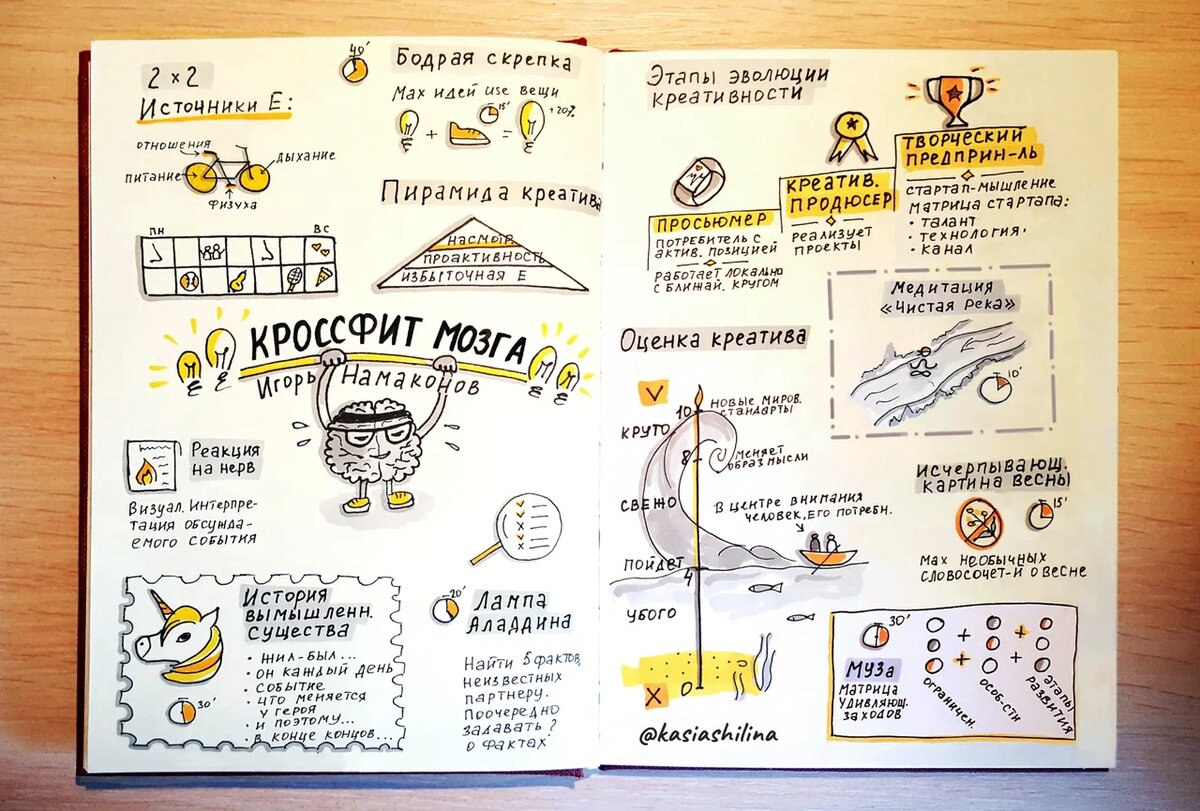 2 x 2
Источники Е:
отношения
дыхание
питание
физуха
ПН
ВС
40'
Бодрая скрепка
Max идей use вещи
15'
+
=
+20%
Пирамида креатива
насмотр.
проактивность
избыточная Е
КРОССФИТ МОЗГА
Игорь Намаконов
Реакция
на нерв
Визуал. интерпре-
тация обсужда-
емого события
История
вымышленн.
существа
• жил-был...
• он каждый день
• событие
• что меняется
у героя
• и поэтому...
• в конце концов...
30'
20'
Лампа
Аладдина
Найти 5 фактов,
неизвестных
партнеру.
Поочередно
задавать ?
о фактах.
Этапы эволюции
креативности
ПРОСЬЮМЕР
потребитель с
актив. позицией
работает локально
с ближай. кругом
КРЕАТИВ.
ПРОДЮСЕР
реализует
проекты
ТВОРЧЕСКИЙ
ПРЕДПРИН-ЛЬ
стартап-мышление
матрица стартапа:
• талант
• технология
• канал
Медитация
«Чистая река»
10'
Оценка креатива
V
10
новые миров.
стандарты
круто
8
меняет
образ мысли
свежо
в центре внимания
человек, его потребн.
пойдет
4
убого
X
0
@kasiashilina
исчерпывающ.
картина весны
15'
Max необычных
словосочет-й о весне
30'
МУЗА
матрица
удивляющ.
заходов
+
+
+
+
ограничен.
особ-сти
этапы
развития